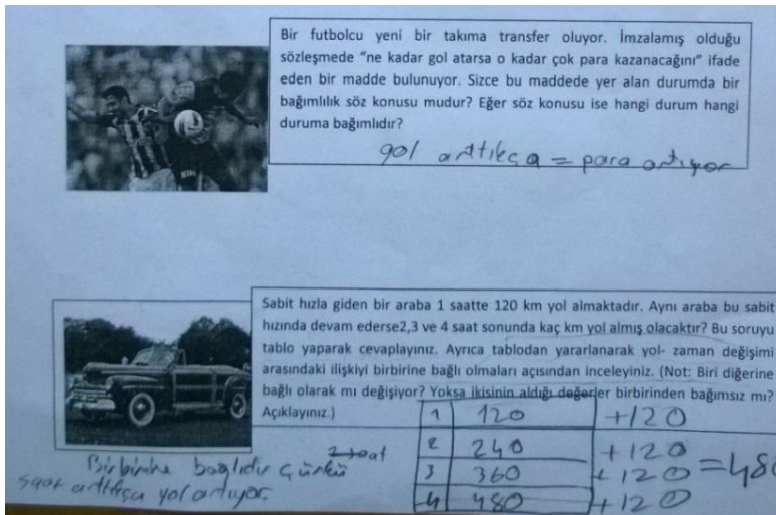 Bir futbolcu yeni bir takıma transfer oluyor. İmzalamış olduğu
sözleşmede "ne kadar gol atarsa o kadar çok para kazanacağını" ifade
eden bir madde bulunuyor. Sizce bu maddede yer alan durumda bir
bağımlılık söz konusu mudur? Eğer söz konusu ise hangi durum hangi
duruma bağımlıdır?
gol arttıkça = para artıyor
Sabit hızla giden bir araba 1 saatte 120 km yol almaktadır. Aynı araba bu sabit
hızında devam ederse2,3 ve 4 saat sonunda kaç km yol almış olacaktır? Bu soruyu
tablo yaparak cevaplayınız. Ayrıca tablodan yararlanarak yol- zaman değişimi
arasındaki ilişkiyi birbirine bağlı olmaları açısından inceleyiniz. (Not: Biri diğerine
bağlı olarak mı değişiyor? Yoksa ikisinin aldığı değerler birbirinden bağımsız mı?
Açıklayınız.)
1 120 +120
2 240 +120
3 360 +120 =480
4 480 +120
Birbirine bağlıdır çünkü
saat arttıkça yol artıyor.